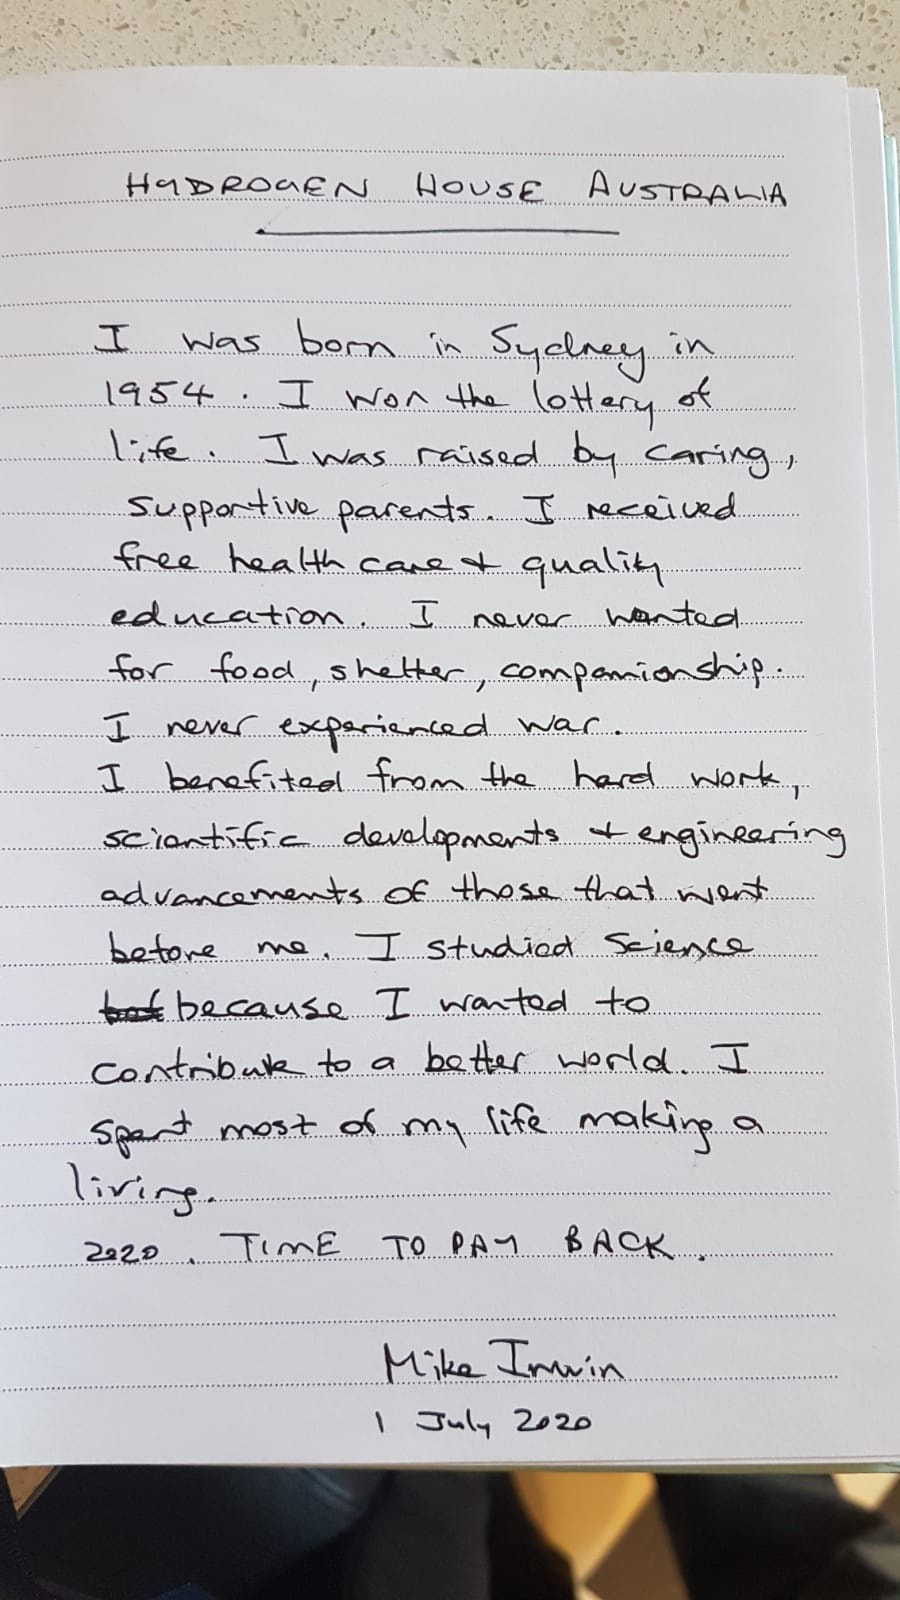 HYDROGEN HOUSE AUSTRALIA
I was born in Sydney in
1954. I won the lottery of
life. I was raised by caring,
supportive parents. I received
free health care + quality
education. I never wanted
for food, shelter, companionship.
I never experienced war.
I benefited from the hard work,
scientific developments + engineering
advancements of those that went
before me. I studied Science
because I wanted to
contribute to a better world. I
spent most of my life making a
living.
2020. TIME TO PAY BACK.
Mike Irwin
1 July 2020